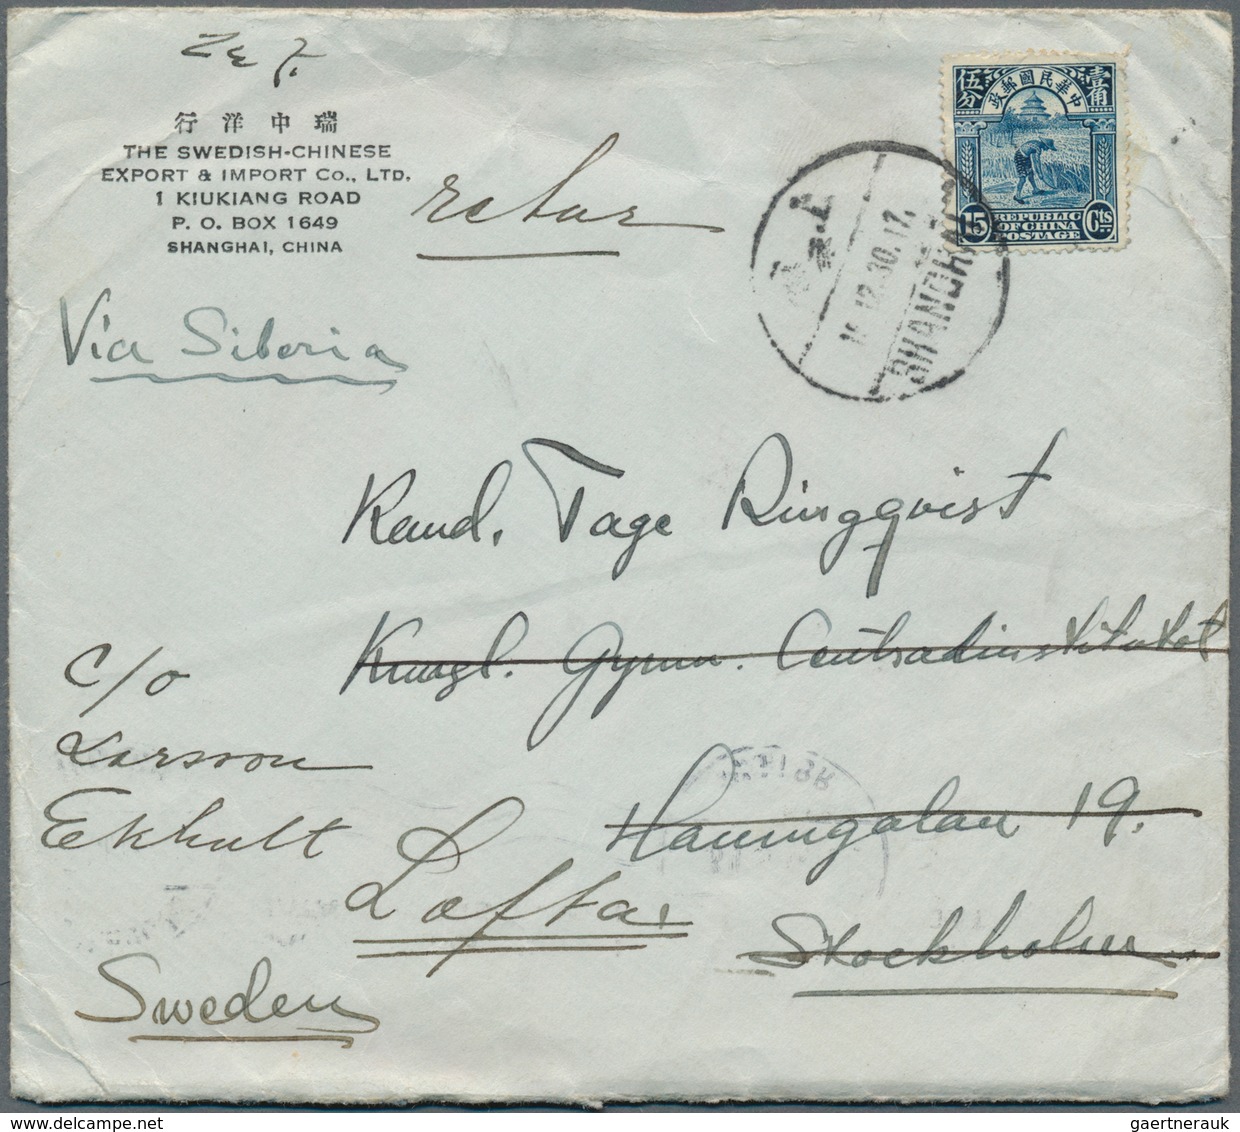 行洋中瑞
THE SWEDISH-CHINESE
EXPORT & IMPORT CO., LTD.
1 KIUKIANG ROAD
P. O. BOX 1649
SHANGHAI, CHINA
retur
伍分 政郵國民華中 壹角
15 REPUBLIC Cts
OF CHINA
POSTAGE
上海
12.30.17.
SHANGHAI
Via Siberia
Kand. Tage Ringqvist
Kungl. Gymn. Centralinstitutet
c/o
Larsson
Ekhult
Hamngatan 19.
Loftar
Stockholm
Sweden
gaertnerauk